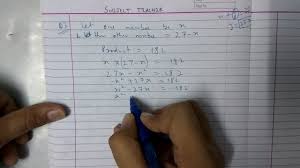 SUBJECT TEACHER
Q3 Let one number be x
& let the other number = 27-x
Product = 182
x x (27-x) = 182
27x - x² = 182
- x² + 27x = 182
x² - 27x = -182
x²